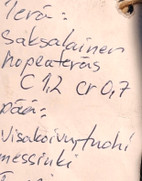 Terä:
Saksalainen
hopeateräs
C 1,2 cr 0,7
pää:
Visakoivu, tuohi
messinki